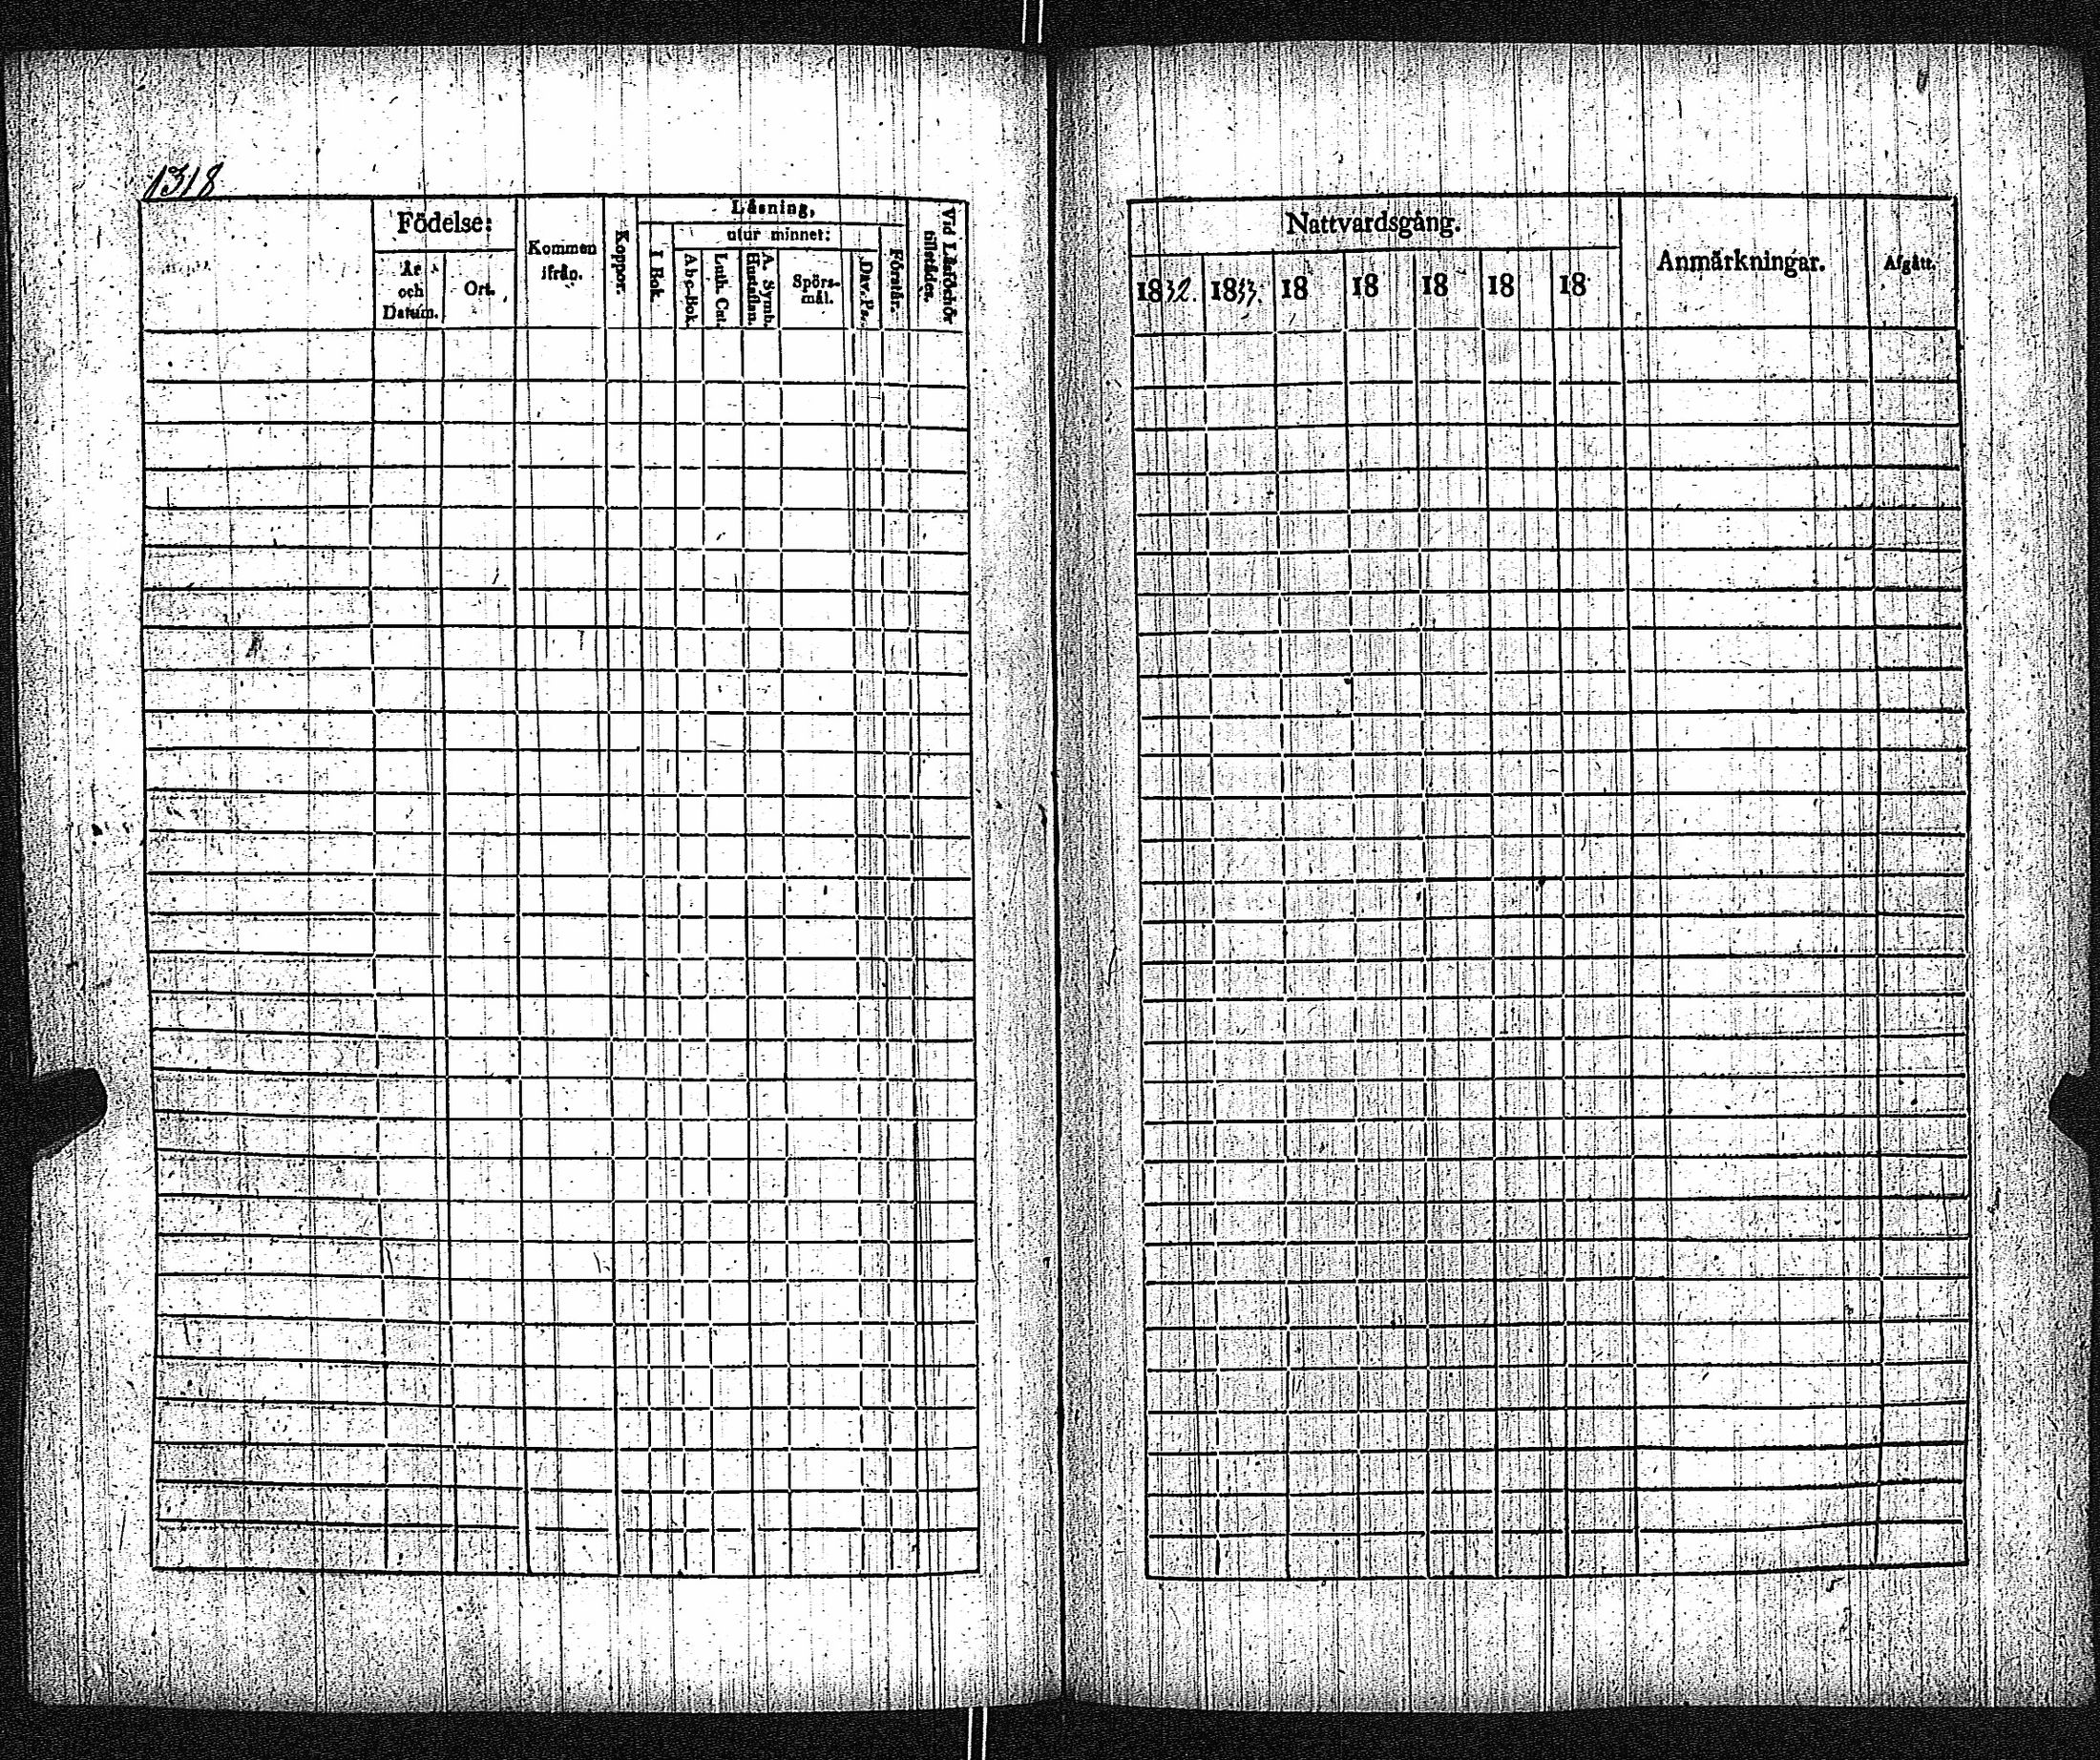 1318
Födelse:
År och Datum.
Ort.
Kommen ifrån.
Koppor.
Läsning,
I Bok.
utur minnet:
Abc-Bok.
Luth. Cat.
A. Symb. Hustaflan.
Spörs-mål.
Dav. Ps.
Förstår.
Vid Läsförhör tillstädes.
Nattvardsgång.
1832. 1833. 18 18 18 18 18
Anmärkningar.
Afgått.